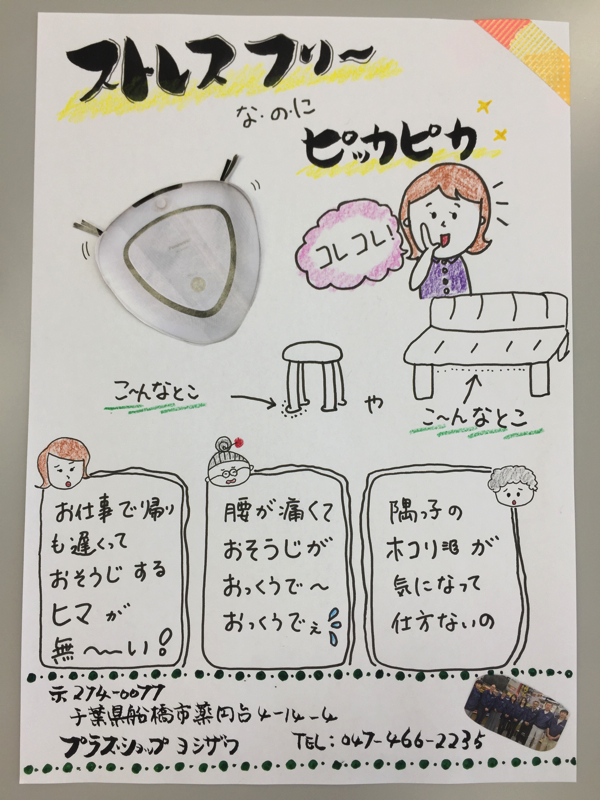 ストレスフリー
な・の・に
ピッカピカ
コレコレ!
こ〜んなとこ
や
こ〜んなとこ
お仕事で帰り
も遅くって
おそうじする
ヒマが
無〜〜い!
腰が痛くて
おそうじが
おっくうで〜
おっくうでぇ
隅っ子の
ホコリ達が
気になって
仕方ないの
〒274-0077
千葉県船橋市薬円台4-14-4
プラスショップ ヨシザワ
TEL:047-466-2235